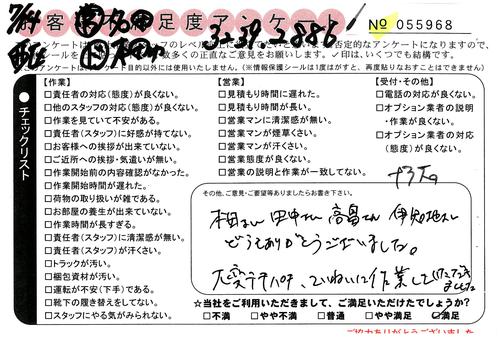 お客様満足度アンケート
No 055968
3239 2886
ンケートは
否定的なアンケートになりますので、
数多くの正直なご意見をお願いします。✓印は、いくつでも結構です。
のアンケートは目的以外には使用いたしません。(※情報保護シールは1度はがすと、再度貼りなおすことはできません)
●チェックリスト
【作業】
□責任者の対応(態度)が良くない。
□他のスタッフの対応(態度)が良くない。
□作業を見ていて不安がある。
□責任者(スタッフ)に好感が持てない。
□お客様への挨拶が出来ていない。
□ご近所への挨拶・気遣いが無い。
□作業開始前の内容確認がなかった。
□作業開始時間が遅れた。
□荷物の取り扱いが雑である。
□お部屋の養生が出来ていない。
□作業時間が長すぎる。
□責任者(スタッフ)に清潔感が無い。
□責任者(スタッフ)が汗くさい。
□トラックが汚い。
□梱包資材が汚い。
□運転が不安(下手)である。
□靴下の履き替えをしてない。
□スタッフにやる気がみられない。
【営業】
□見積もり時間に遅れた。
□見積もり時間が長い。
□営業マンに清潔感が無い。
□営業マンが煙草くさい。
□営業マンが汗くさい。
□営業態度が良くない。
□営業の説明と作業が一致してない。
【受付・その他】
□電話の対応が良くない。
□オプション業者の説明
・作業が良くない。
□オプション業者の対応
(態度)が良くない。
その他、ご意見・ご要望等ありましたらお書き下さい。
本田さん 田中さん 高畠さん 伊知地さん
どうもありがとうございました。
大変テキパキ、ていねいに作業して
☆当社をご利用いただきまして、ご満足いただけたでしょうか?
□不満 □やや不満 □普通 □やや満足 ☑満足
ご協力ありがとうございました